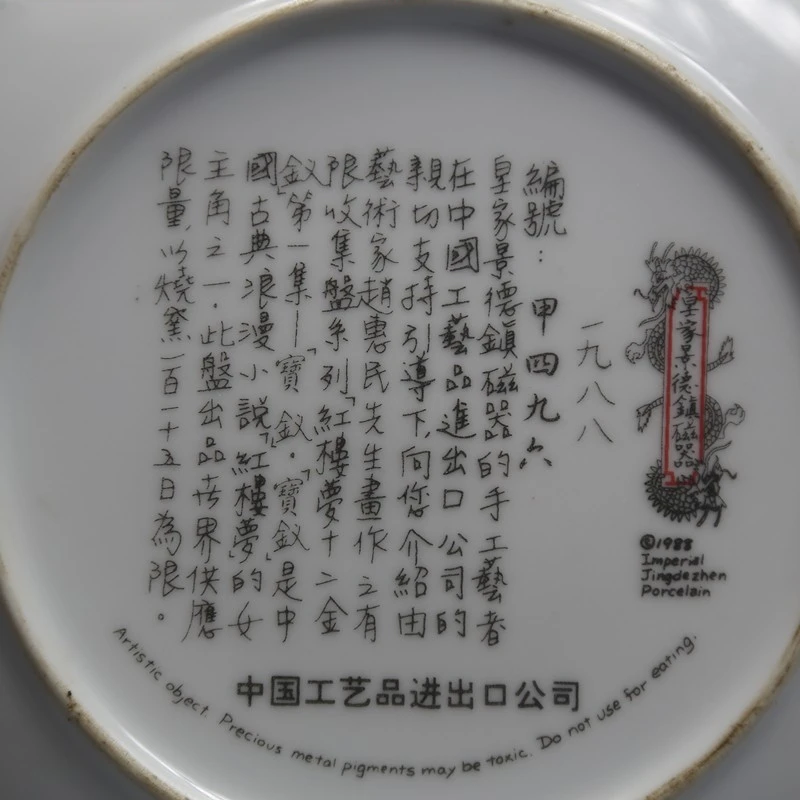 皇家景德鎮磁器
©1988
Imperial
Jingdezhen
Porcelain
一九八八
編號：甲四九六
皇家景德鎮磁器的手工藝者
在中國工藝品進出口公司的
親切支持引導下，向您介紹由
藝術家趙惠民先生畫作之有
限收集盤系列「紅樓夢十二金
釵」第一集—「寶釵。」「寶釵」是中
國古典浪漫小說「紅樓夢」的女
主角之一。此盤出品世界供應
限量，以燒窯一百一十五日為限。
中国工艺品进出口公司
Artistic object. Precious metal pigments may be toxic. Do not use for eating.